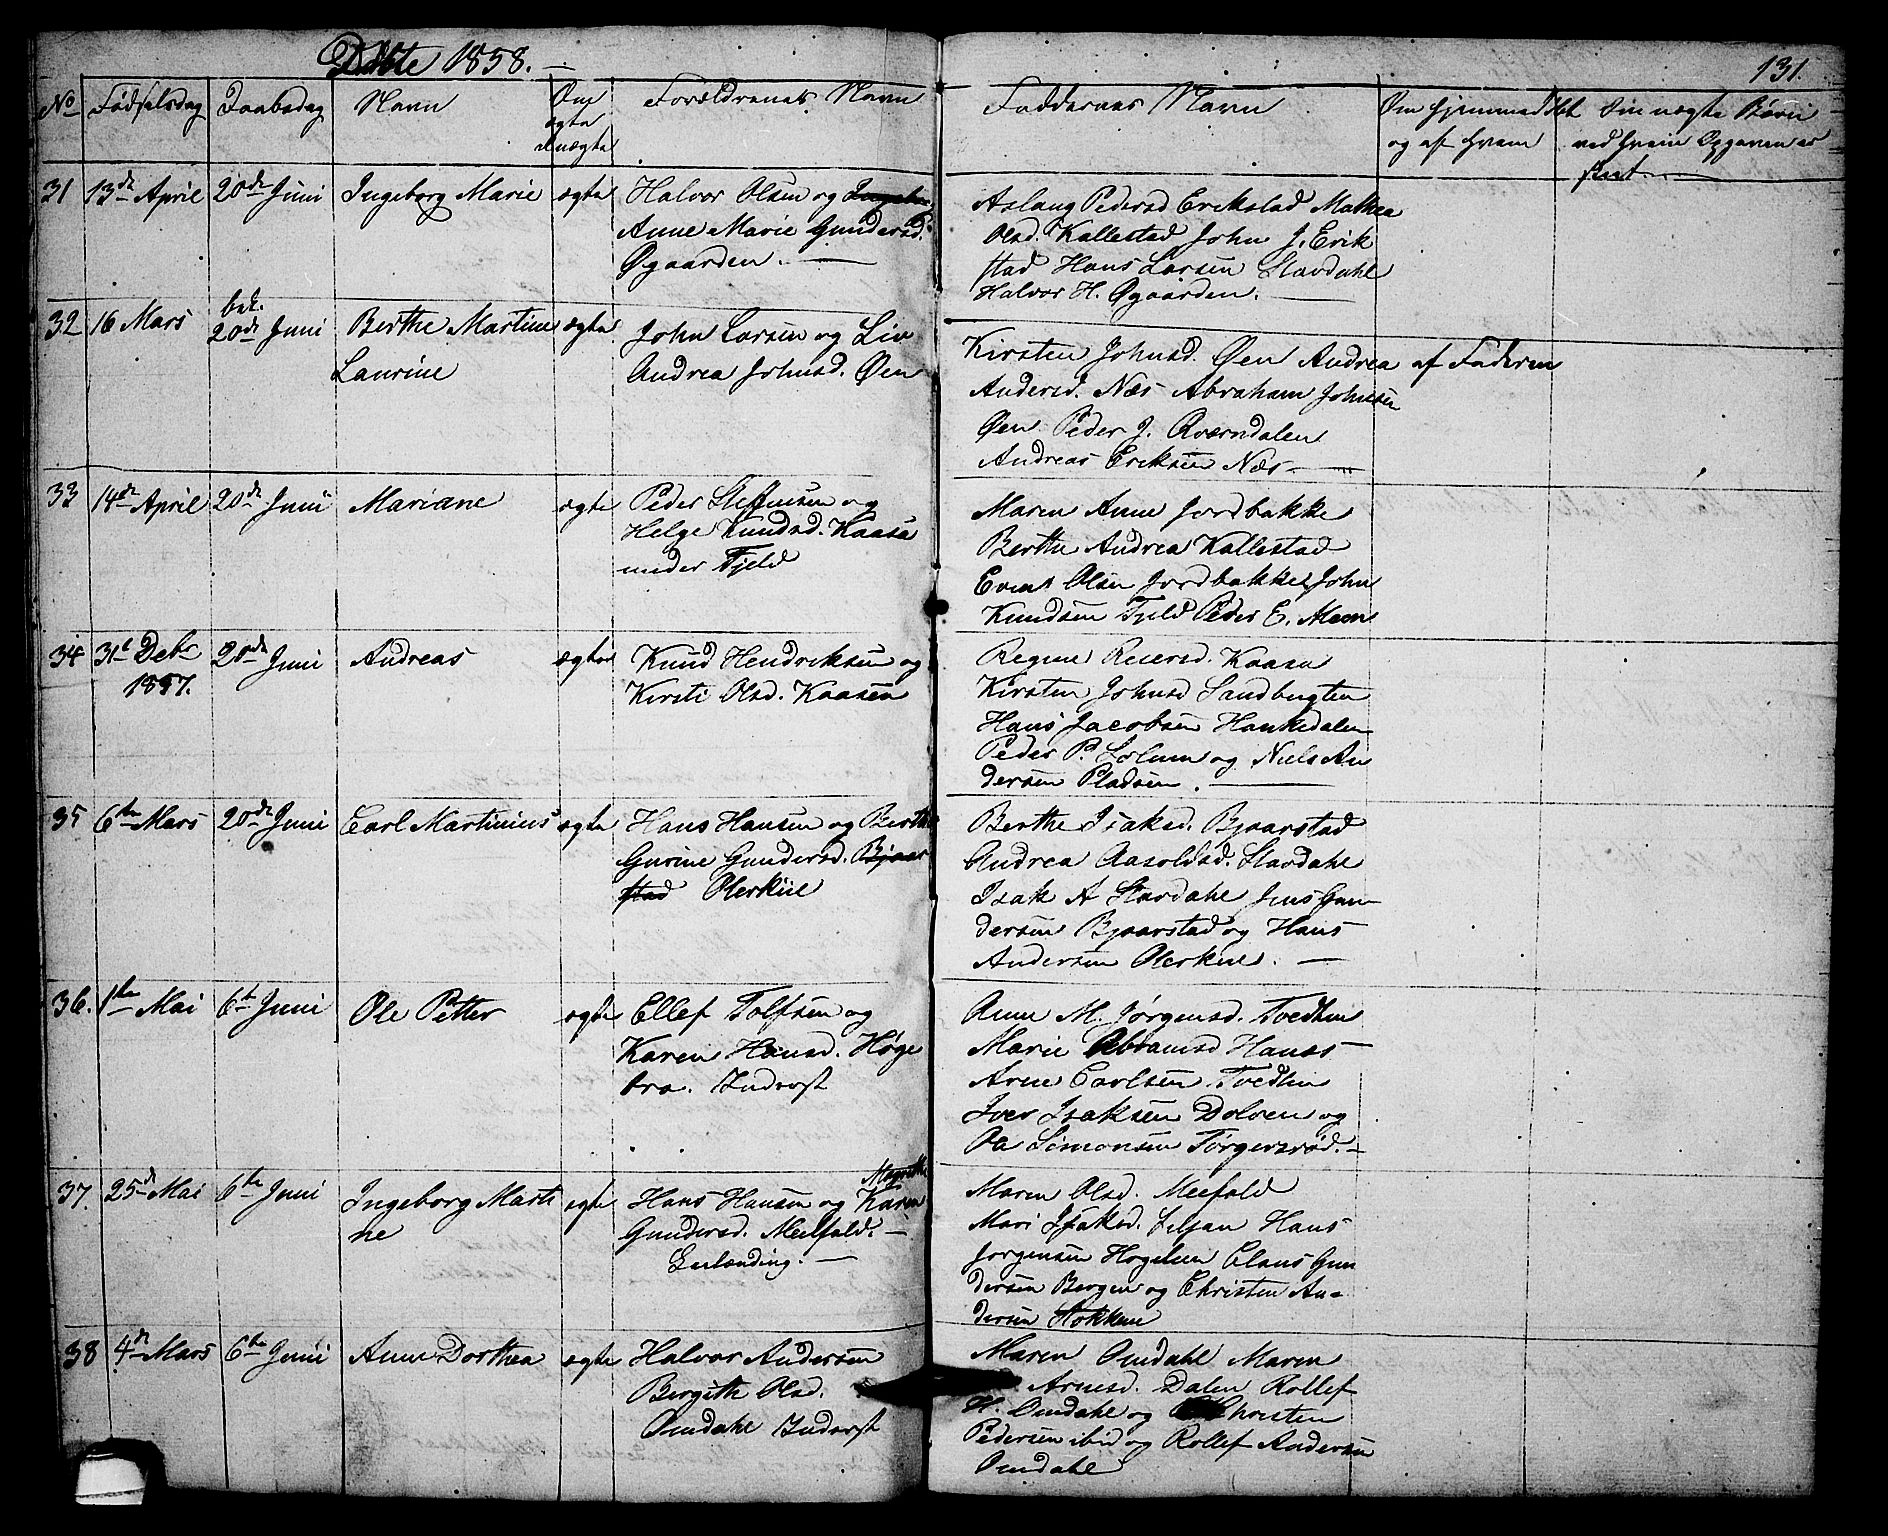 Døbte 1858. —
131.
No
Fødselsdag
Daabsdag
Navn
Om
ægte
uægte
Forældrenes Navn
Faddernes Navn
Om hjemmedøbt
og af hvem
Om uægte Børn
ved hvem Opgaven er
skeet —
31 13de April 20de Juni Ingeborg Marie ægte
Halvor Olsen og
Anne Marie Gundersd.
Øgaarden. —
Aslaug Pedersd Erikstad Mathea
Olsd. Kallestad John J. Erik
stad Hans Larsen Stavdahl
Halvor H. Øgaarden. —
32 16 Mars
bek.
20de Juni
Berthe Martine
Laurine
ægte
John Larsen og Liv
Andrea Johnsd. Øen
Kirsten Johnsd. Øen Andrea
Andersd. Næs Abraham Johnsen
Øen Peder J. Qværndalen
Andreas Eriksen Næs —
af Faderen
33 14de April 20de Juni Mariane ægte
Peder Steffensen og
Helge Knudsd. Kaasa
under Fjeld
Maren Anne Jordbakke
Berthe Andrea Kallestad
Even Olsen Jordbakke, John
Knudsen Fjeld Peder E. Moen
34 31te Debr 20de Juni Andreas ægte
1857.
Knud Hendriksen og
Kirsti Olsd. Kaasen
Regine Reiersd. Kaasa
Kirsten Johnsd Sandbugten
Hans Jacobsen Haukedalen
Peder P. Solum og Niels An
dersen Pladsen. —
35 6te Mars 20de Juni Carl Martinius ægte
Hans Hansen og Berthe
Gurine Gundersd. Bjaar
stad Olerkiie
Berthe Isaksd. Bjaarstad
Andrea Aasoldsd. Stavdahl
Isak A Stavdahl Jens Gun
dersen Bjaarstad og Hans
Andersen Olerkiie. —
36. 1te Mai 6te Juni Ole Petter ægte
Ellef Tolfsen og
Karen Hansd. Høge
bra. Inderst
Anne M. Jørgensd. Tvedten
Marie Abramsd Hanæs
Arne Carlsen Tvedten
Iver Isaksen Dolven og
Ole Simonsen Torgersrød. —
37. 25de Mai 6te Juni Ingeborg Marti
ne
ægte
Hans Hansen og Karen
Gundersd. Meelfald. —
Enlænding. —
Maren Olsd. Meefald
Mari Isaksd. Liljan Hans
Jørgensen Hogelien Claus Gun
dersen Bergen og Christen An-
dersen Stokken
38 4de Mars 6te Juni Anne Dorthea ægte
Halvor Andersen
Bergith Olsd.
Omdahl Inderst
Maren Omdahl Maren
Arnesd. Dalen Rollef
H. Omdahl og Christen
Pedersen ibid og Rollef Andersen
Omdahl